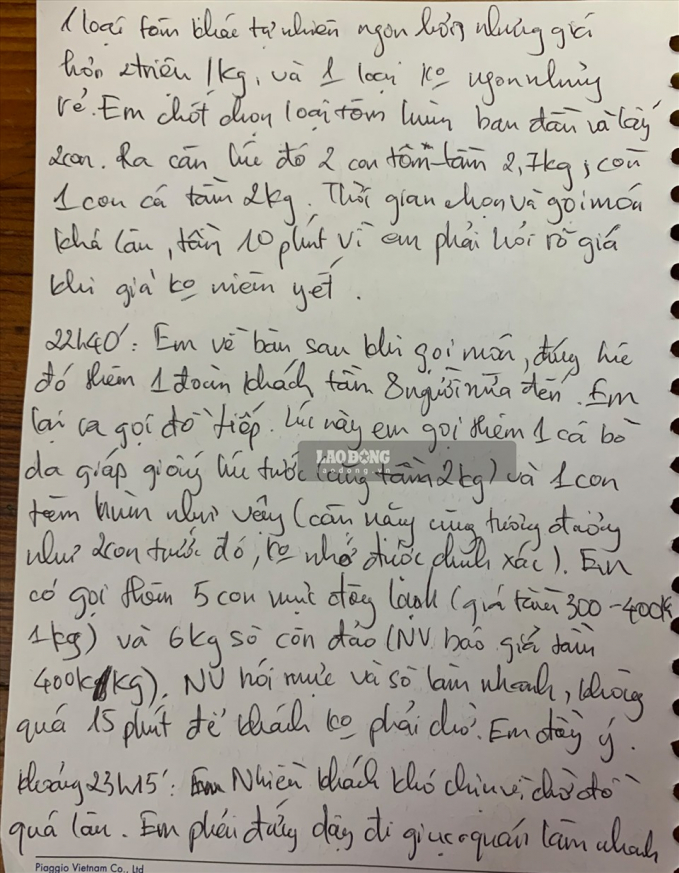 1 loại tôm khác tự nhiên ngon hơn nhưng giá
hơn 2triệu 1kg, và 1 loại ko ngon nhưng
rẻ. Em chốt chọn loại tôm hùm ban đầu và lấy
2con. Ra cân lúc đó 2 con tôm tầm 2,7kg, còn
1 con cá tầm 2kg. Thời gian chọn và gọi món
khá lâu, tầm 10 phút vì em phải hỏi rõ giá
khi giá ko niêm yết.
22h40': Em về bàn sau khi gọi món, đúng lúc
đó thêm 1 đoàn khách tầm 8 người nữa đến. Em
lại ra gọi đồ tiếp. Lúc này em gọi thêm 1 cá bò
da giáp giống lúc trước (cũng tầm 2kg) và 1 con
tôm hùm như vậy (cân nặng cũng tương đương
như 2con trước đó, ko nhớ được chính xác). Em
có gọi thêm 5 con mực đông lạnh (giá tầm 300-400k
1kg) và 6kg sò côn đảo (NV báo giá tầm
400k/kg). NV nói mực và sò làm nhanh, không
quá 15 phút để khách ko phải chờ. Em đồng ý.
Khoảng 23h15': Nhiều khách khó chịu vì chờ đồ
quá lâu. Em phải đứng dậy đi giục quán làm nhanh
Piaggio Vietnam Co., Ltd
LAO ĐỘNG
laodong.vn